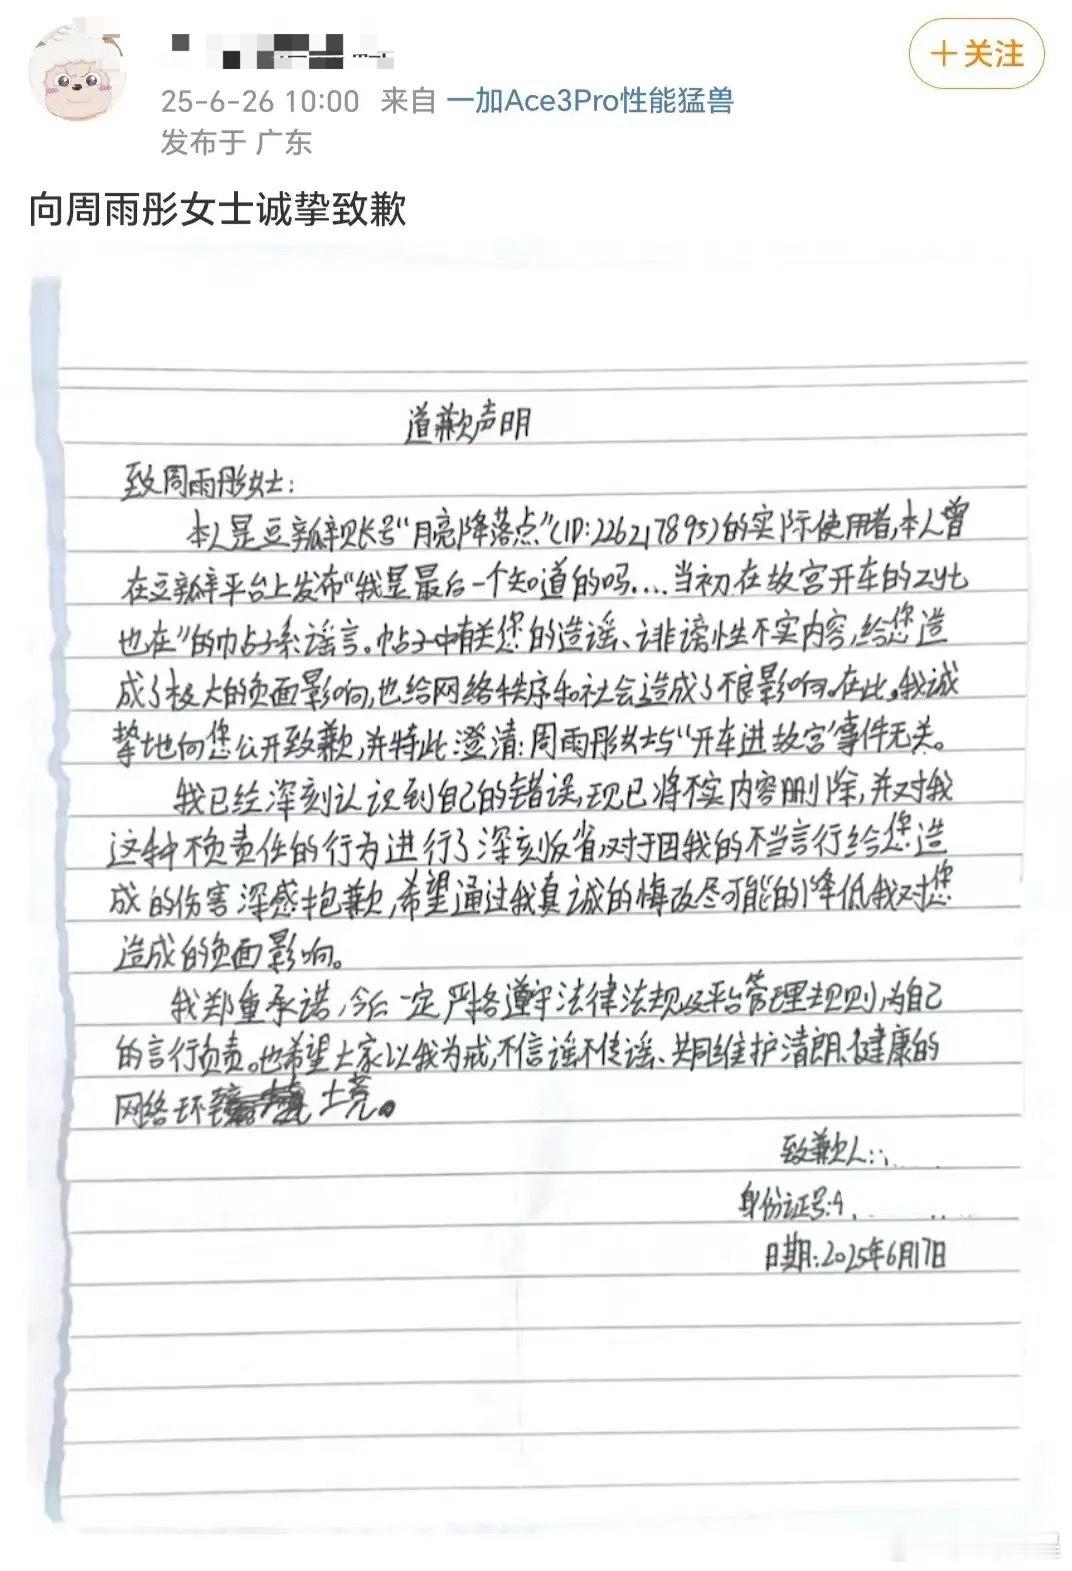 25-6-26 10:00 来自 一加Ace3Pro性能猛兽
＋关注
发布于 广东
向周雨彤女士诚挚致歉
道歉声明
致周雨彤女士：
本人是豆瓣账号“月亮降落点”(ID:226217895)的实际使用者,本人曾
在豆瓣平台上发布“我是最后一个知道的吗....当初在故宫开车的zyt
也在”的帖子系谣言。帖子中有关您的造谣、诽谤性不实内容,给您造
成了极大的负面影响,也给网络秩序和社会造成了不良影响。在此,我诚
挚地向您公开致歉,并特此澄清：周雨彤女士与“开车进故宫”事件无关。
我已经深刻认识到自己的错误,现已将不实内容删除,并对我
这种不负责任的行为进行了深刻反省,对于因我的不当言行给您造
成的伤害深感抱歉,希望通过我真诚的悔改尽可能的降低我对您
造成的负面影响。
我郑重承诺,今后一定严格遵守法律法规及平台管理规则,为自己
的言行负责。也希望大家以我为戒,不信谣不传谣、共同维护清朗、健康的
网络环境。
致歉人：
身份证号:4
日期:2025年6月17日